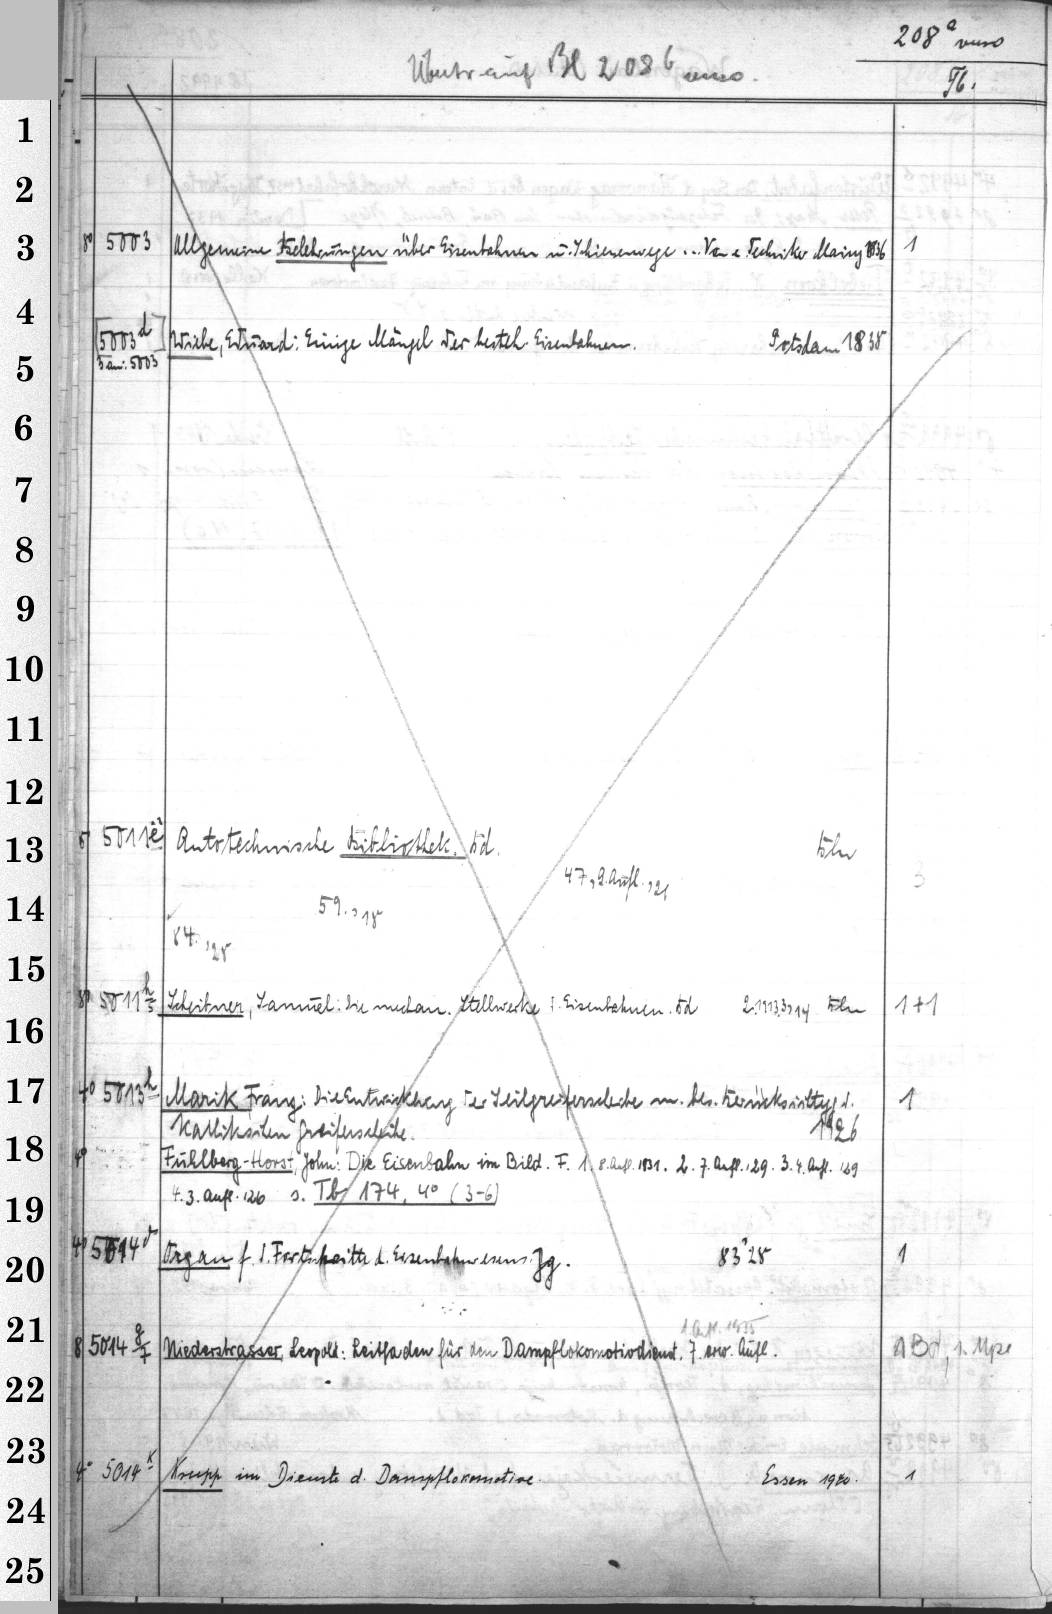 208ᵃ verso
Übertr. auf Bl 208ᵇ verso.
Tb.
1
2
3 8° 5003 Allgemeine Belehrungen über Eisenbahnen u. Schienenwege ... Von e. Techniker Mainz 1836 1
4
[5003ᵈ] Wiebe, Eduard: Einige Mängel der besteh. Eisenbahnen. Potsdam 1838
5 5 an: 5003
6
7
8
9
10
11
12
13 8° 5011 Autotechnische Bibliothek. Bd. Bln 3
47, 2. Aufl., 21
14 59., 18
84., 28
15
8° 5011 Scheibner, Samuel: Die mechan. Stellwerke d. Eisenbahnen. Bd 2. 1913, 3, 14 Bln 1+1
16
17 4° 5013ʰ Marik Franz: Die Entwicklung der Seilgreiferscheibe m. bes. Berücksichtigg d.
Kalliksilen Greiferscheibe. 1926
18 4° Fuhlberg-Horst, John: Die Eisenbahn im Bild. F. 1. 8. Aufl. 1931. 2. 7. Aufl. 29. 3. 4. Aufl. 29
4. 3. Aufl. 26 s. Tb 174, 4° (3-6)
19
20 4° 5014ᵈ Organ f. d. Fortschritte d. Eisenbahnwesens. Jg. 83, 28 1
21 1. Aufl. 1935
8 5014 g/7 Niederstrasser, Leopold: Leitfaden für den Dampflokomotivdienst. 7. erw. Aufl. 1 Bd, 1. Mpe
22
23
4° 5014ᵏ Krupp im Dienste d. Dampflokomotive. Essen 1940. 1
24
25